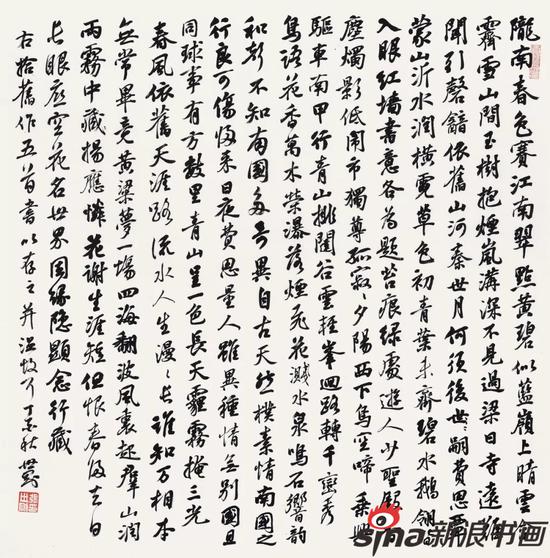 隴南春色賽江南翠點黃碧似藍嶺上晴雲
霽雪山間玉樹抱煙嵐溝深不見過梁日寺遠
聞引磬鐘依舊山河秦世月何須後世嗣費思
蒙山沂水潤橫霓草色初青葉未齊碧水鵝
入眼紅墙書意各為題苔痕綠處遊人少聖殿
塵燭影低鬧市獨尊孤寂寂夕陽西下鳥空啼乘興
驅車南甲行青山排闥谷雲輕峯迴路轉千巒秀
鳥語花香萬水縈瀑落煙飛花濺水泉鳴石響韵
和彭不知南國多奇異自古天然樸素情南國之
行良可傷歸來日夜費思量人雖異種情無別國且
同球事有方數里青山呈一色長天霾霧掩三光
春風依舊天涯路流水人生漫漫長誰知万相本
無常畢竟黃粱夢一場四海翻波風裏起羣山潤
雨霧中藏揚應憐花謝生涯短但恨春歸去日
長眼底空花名世界因緣隱顯念行藏
右拾舊作五首書以存之并溫故耳丁亥秋
sina新浪书画